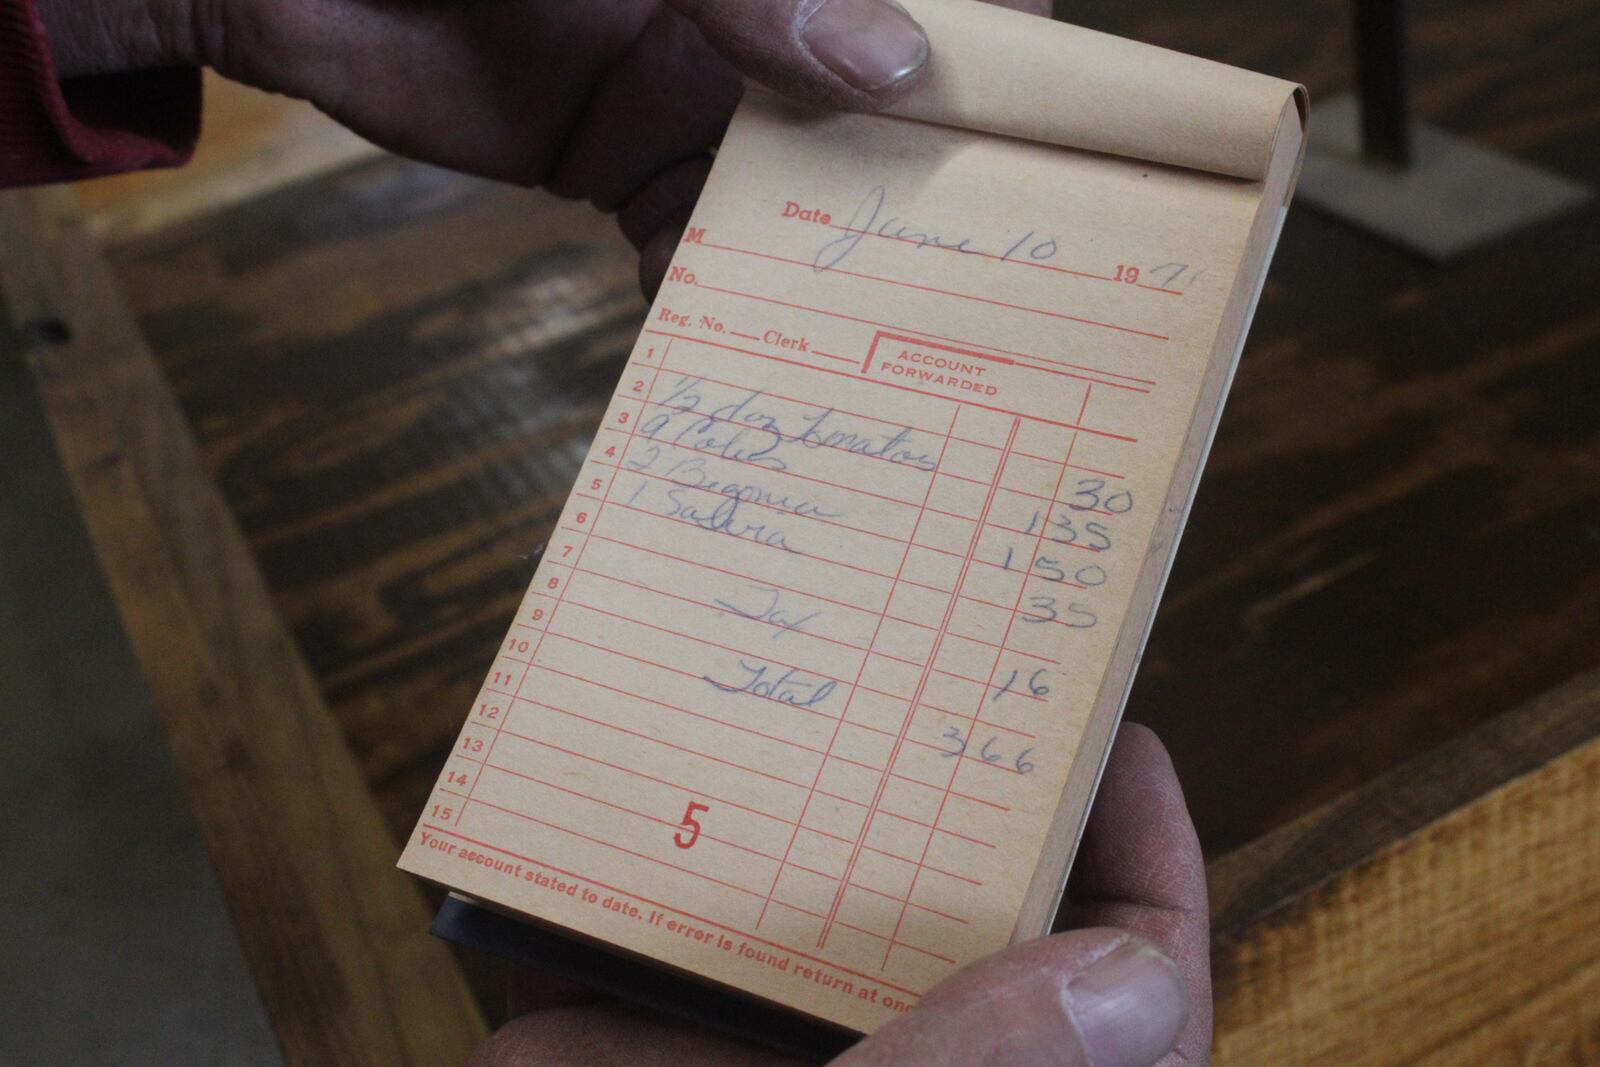 Date June 10 19 7
M
No.
Reg. No. Clerk ACCOUNT FORWARDED
1
2 1/2 doz Tomatoes 30
3 9 Coleus 135
4 2 Begonia 150
5 1 Salvia 35
6
7 Tax 16
8
9 Total 366
10
11
12
13
14
15
5
Your account stated to date. If error is found return at onc